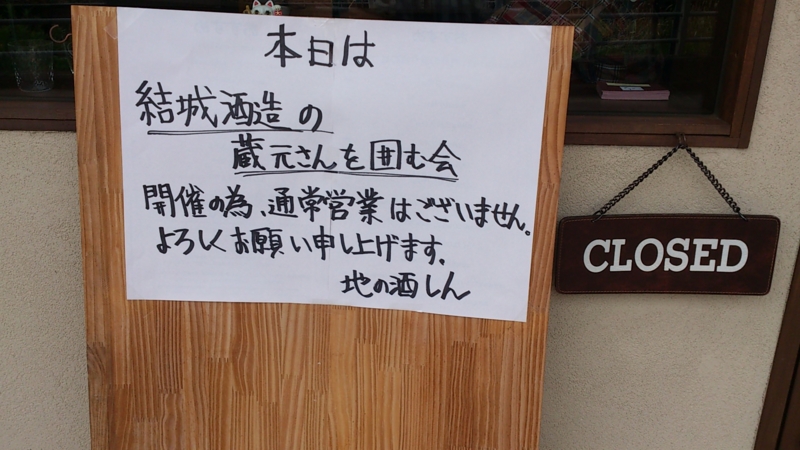 本日は
結城酒造の
蔵元さんを囲む会
開催の為、通常営業はございません。
よろしくお願い申し上げます。
地の酒しん
CLOSED